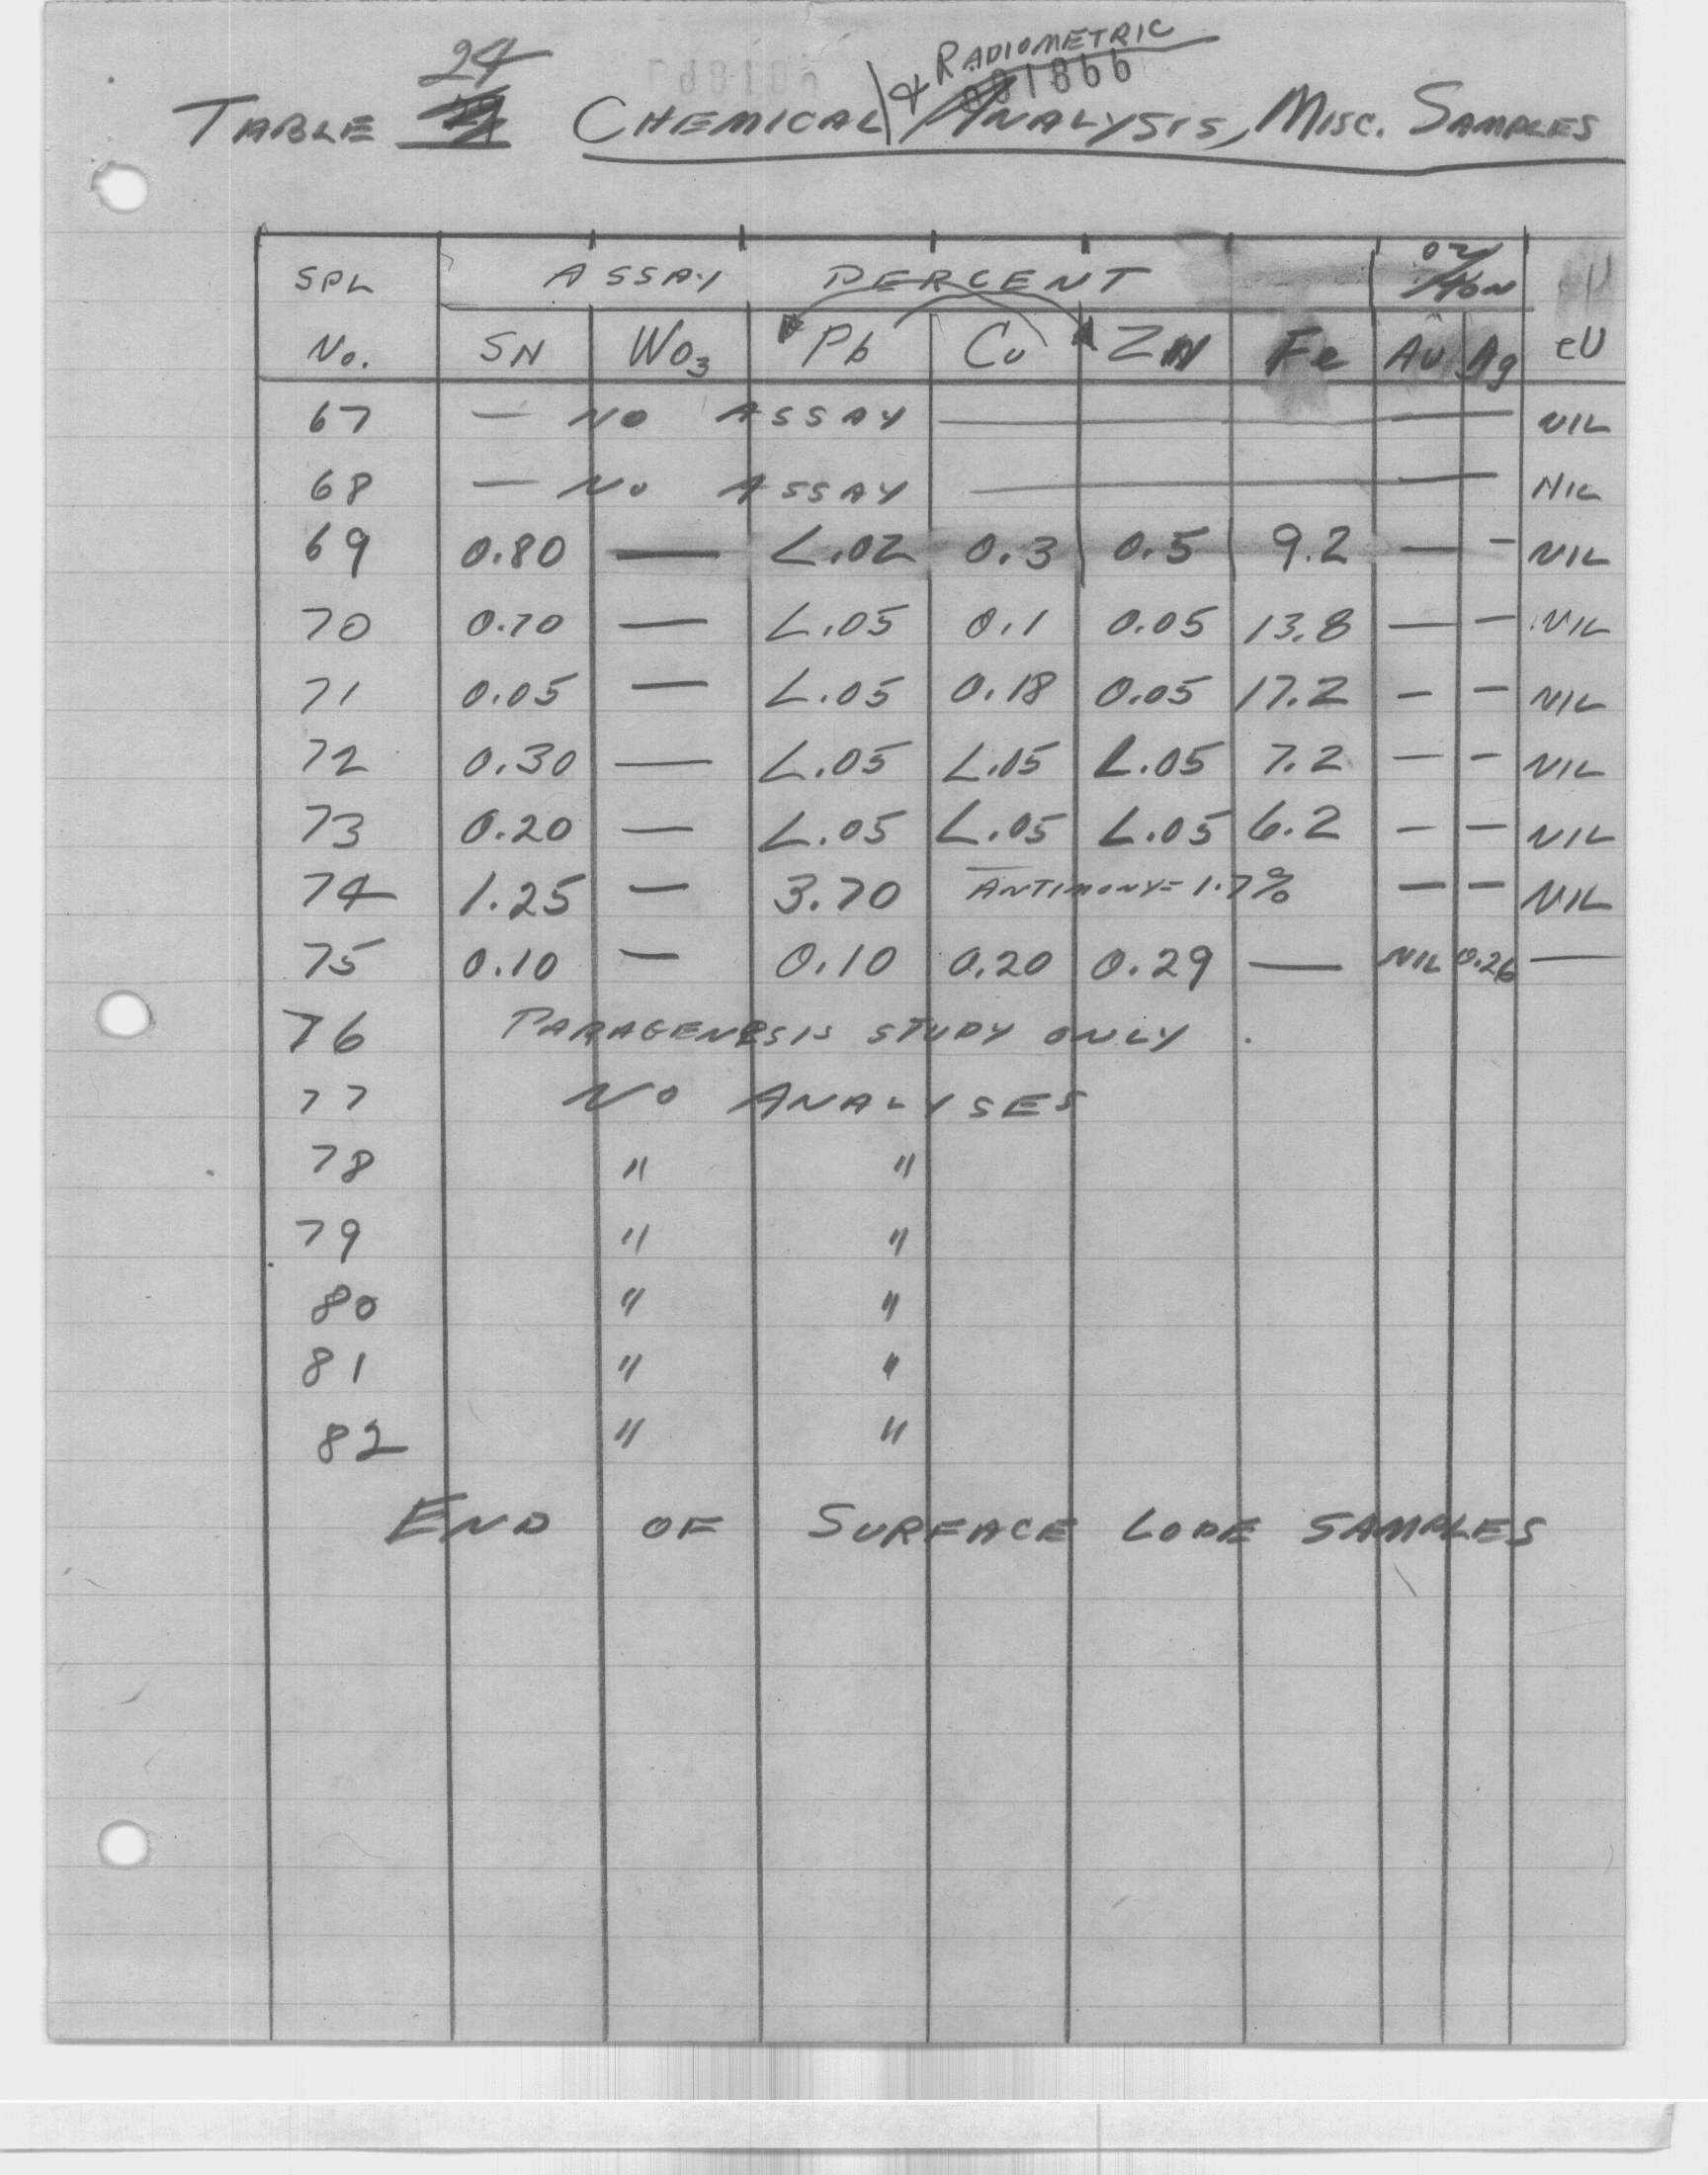 24
& RADIOMETRIC
001866
TABLE CHEMICAL ANALYSIS, MISC. SAMPLES
SPL ASSAY PERCENT oz/ton
No. SN WO3 Pb Cu ZN Fe Au Ag eU
67 — No ASSAY — NIL
68 — No ASSAY — NIL
69 0.80 — L.02 0.3 0.5 9.2 — — NIL
70 0.70 — L.05 0.1 0.05 13.8 — — NIL
71 0.05 — L.05 0.18 0.05 17.2 — — NIL
72 0.30 — L.05 L.05 L.05 7.2 — — NIL
73 0.20 — L.05 L.05 L.05 6.2 — — NIL
74 1.25 — 3.70 ANTIMONY= 1.7% — — NIL
75 0.10 — 0.10 0.20 0.29 — NIL 0.26 —
76 PARAGENESIS STUDY ONLY.
77 No ANALYSES
78 " "
79 " "
80 " "
81 " "
82 " "
END OF SURFACE LODE SAMPLES